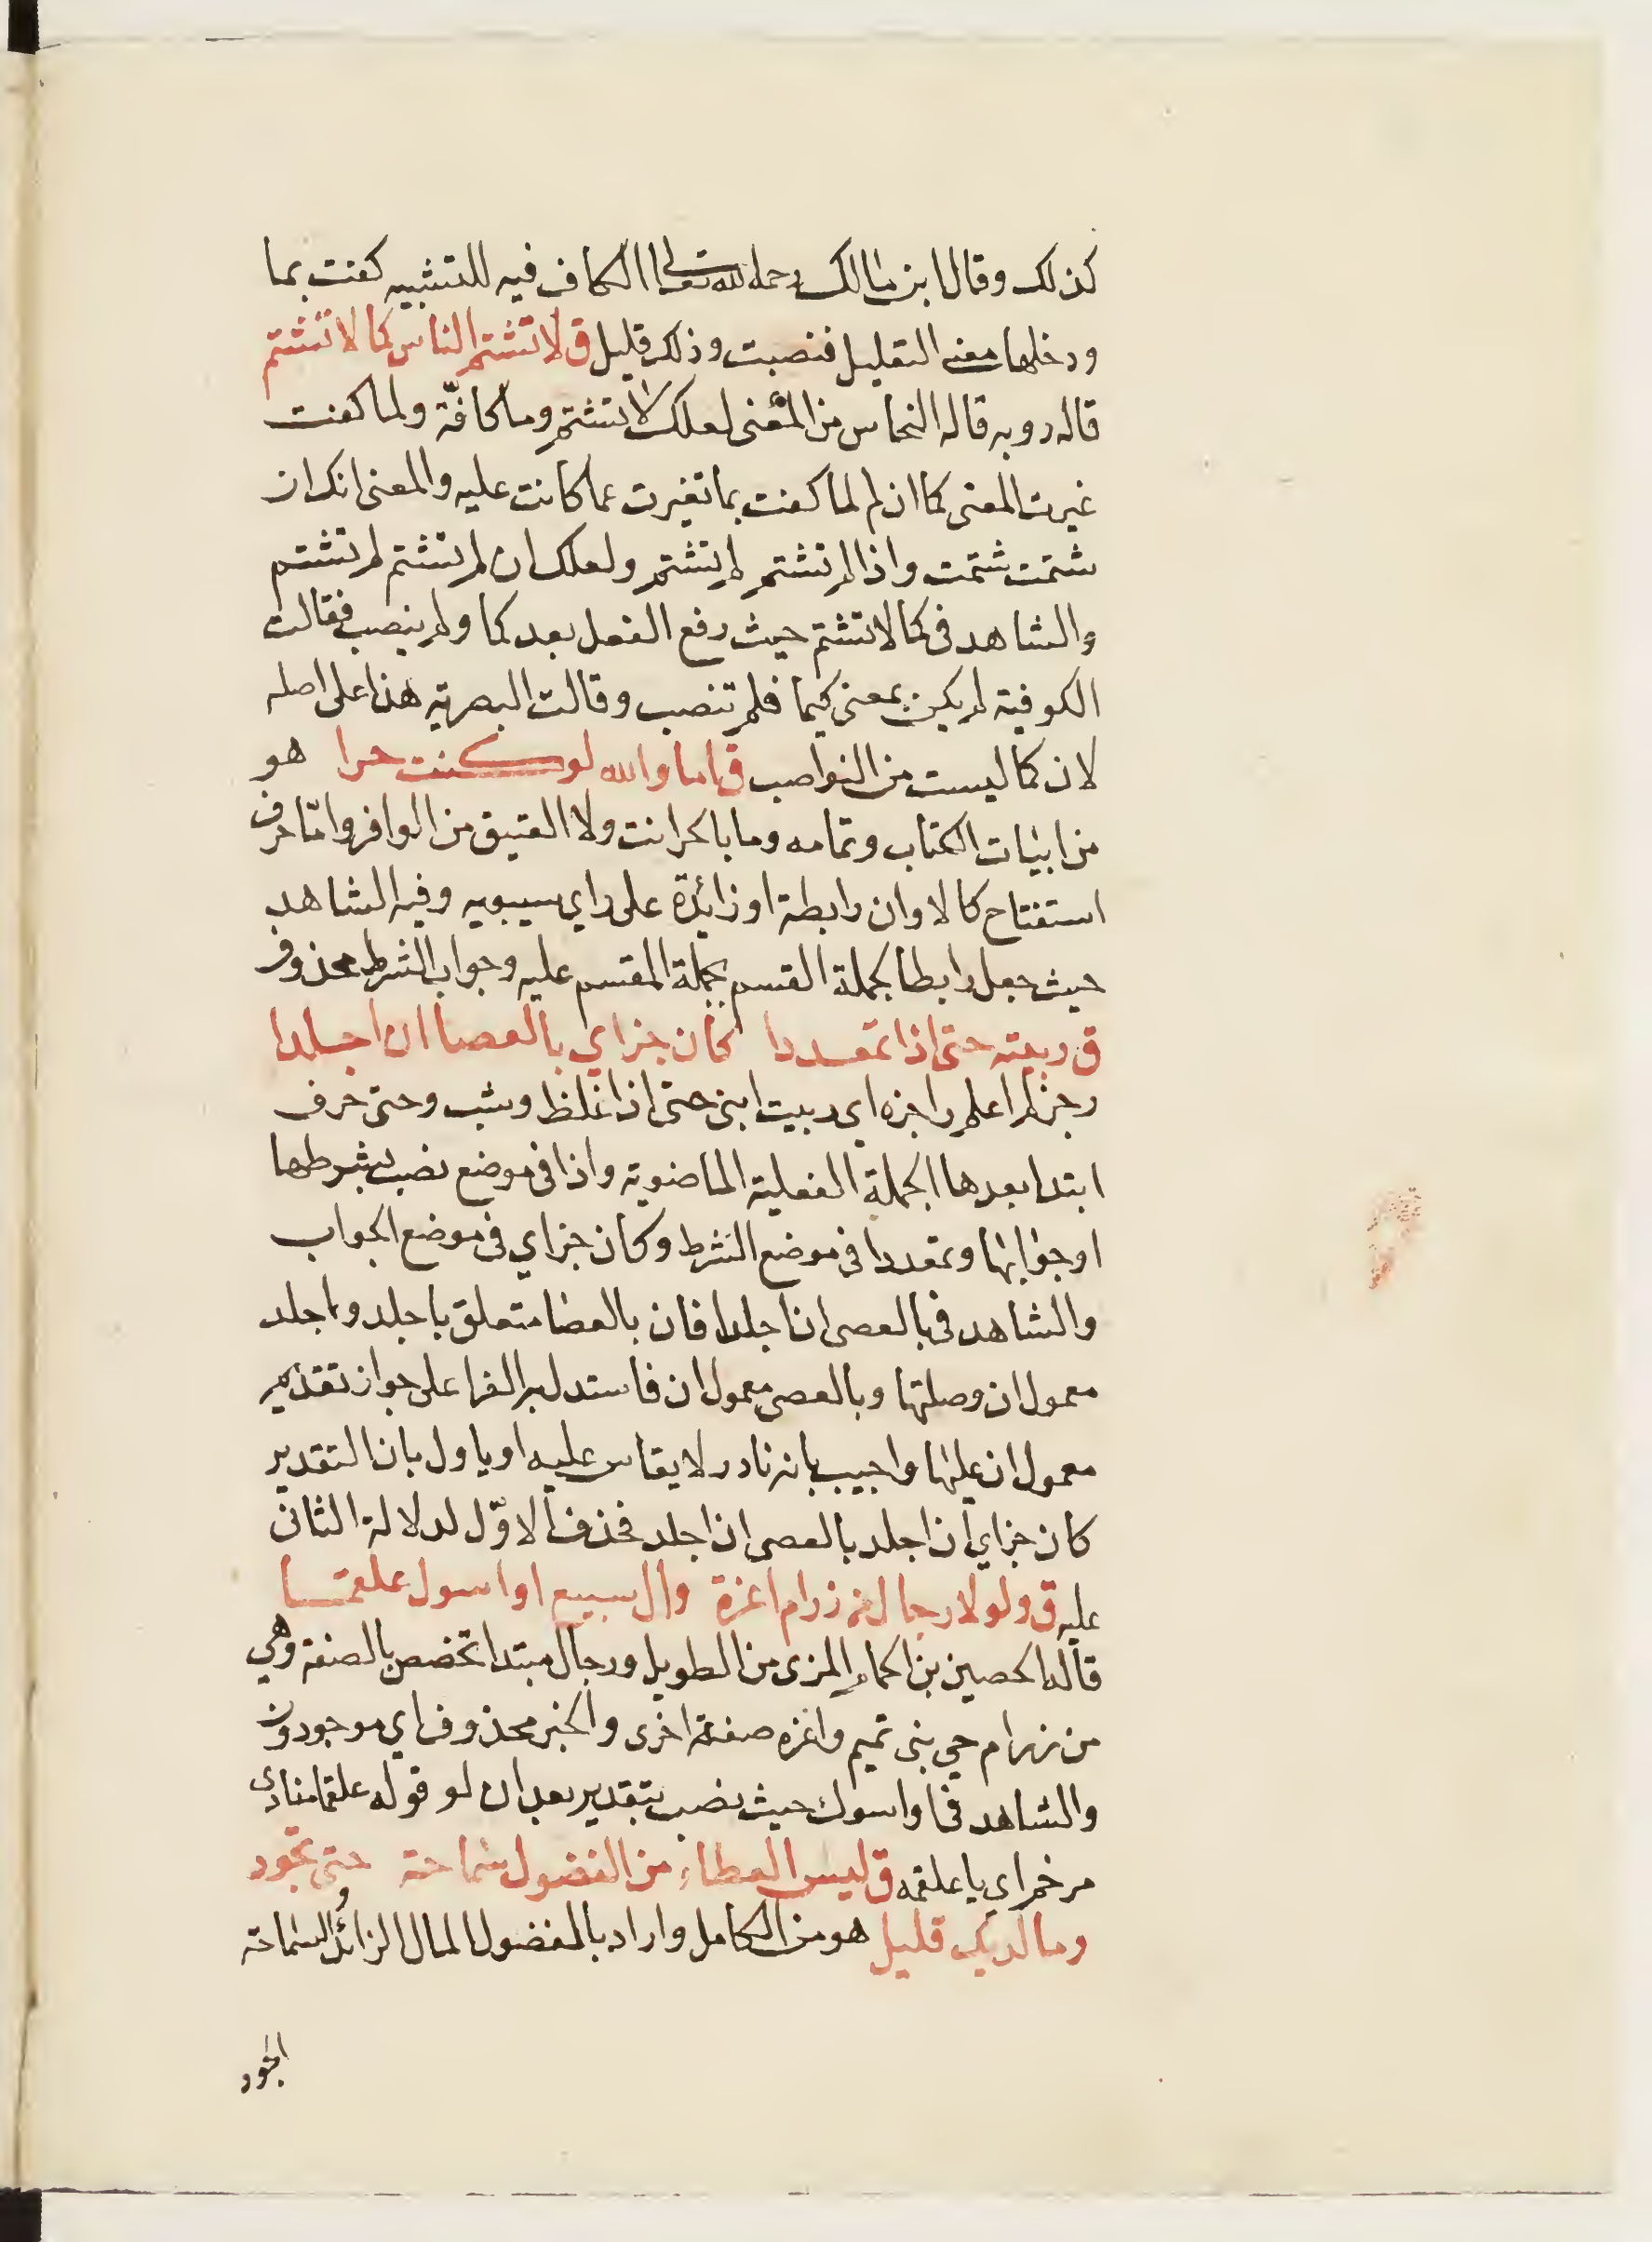 كذلك وقال ابن مالك رحمه الله تعالى الكاف فيه للتشبيه كفت بما
ودخلها معنى التقليل فنصبت وذلك قليل ق لا تشتم الناس كما لا تشتم
قاله روبه قاله النحاس من المعنى لعلك لا تشتم وما كافّة ولما كفت
غيرت المعنى كما ان لم لما كفت بما تغيرت عما كانت عليه والمعنى انك ان
شتمت شتمت واذا لم تشتم لم تشتم ولعلك ان لم تشتم لم تشتم
والشاهد فى كما لا تشتم حيث رفع الفعل بعد كما ولم ينصب فقالت
الكوفية لم يكن بمعنى كيما فلم تنصب وقالت البصرية هذا على اصله
لان كما ليست من النواصب ق اما والله لو كنت حرا هو
من ابيات الكتاب وتمامه وما بالحر انت ولا العتيق من الوافر واما حرف
استفتاح كالا وان رابطة او زائدة على راي سيبويه وفيه الشاهد
حيث جعل رابطا لجملة القسم بجملة المقسم عليه وجواب الشرط محذوف
ق ربيته حتى اذا تمعددا كان جزاي بالعصا ان اجلدا
رجز لم اعلم راجزه اى ربيت ابنى حتى اذا غلظ وشب وحتى حرف
ابتدا بعدها الجملة الفعلية الماضوية واذا فى موضع نصب بشرطها
او جوابها وتمعددا فى موضع الشرط وكان جزاي فى موضع الجواب
والشاهد فى بالعصى ان اجلدا فان بالعصا متعلق باجلد واجلد
معمول ان وصلتها وبالعصى معمول ان فاستدل به الفرا على جواز تقديم
معمول ان عليها واجيب بانه نادر لا يقاس عليه او ياول بان التقدير
كان جزاي ان اجلد بالعصى ان اجلد فحذف الاوّل لدلالة الثانى
عليه ق ولولا رجال من زرام اعزة وال سبيع او اسوك علقما
قاله الحصين بن الحمام المزى من الطويل ورجال مبتدا تخصص بالصفة وهي
من زرام حي بنى تميم واعزه صفة اخرى والخبر محذوف اي موجودون
والشاهد فى او اسوك حيث نصب بتقدير بعد ان لو قوله علقما منادى
مرخم اي يا علقمه ق ليس العطاء من الفضول سماحة حتى تجود
وما لديك قليل هو من الكامل واراد بالفضول المال الزائد والسماحة
الجود